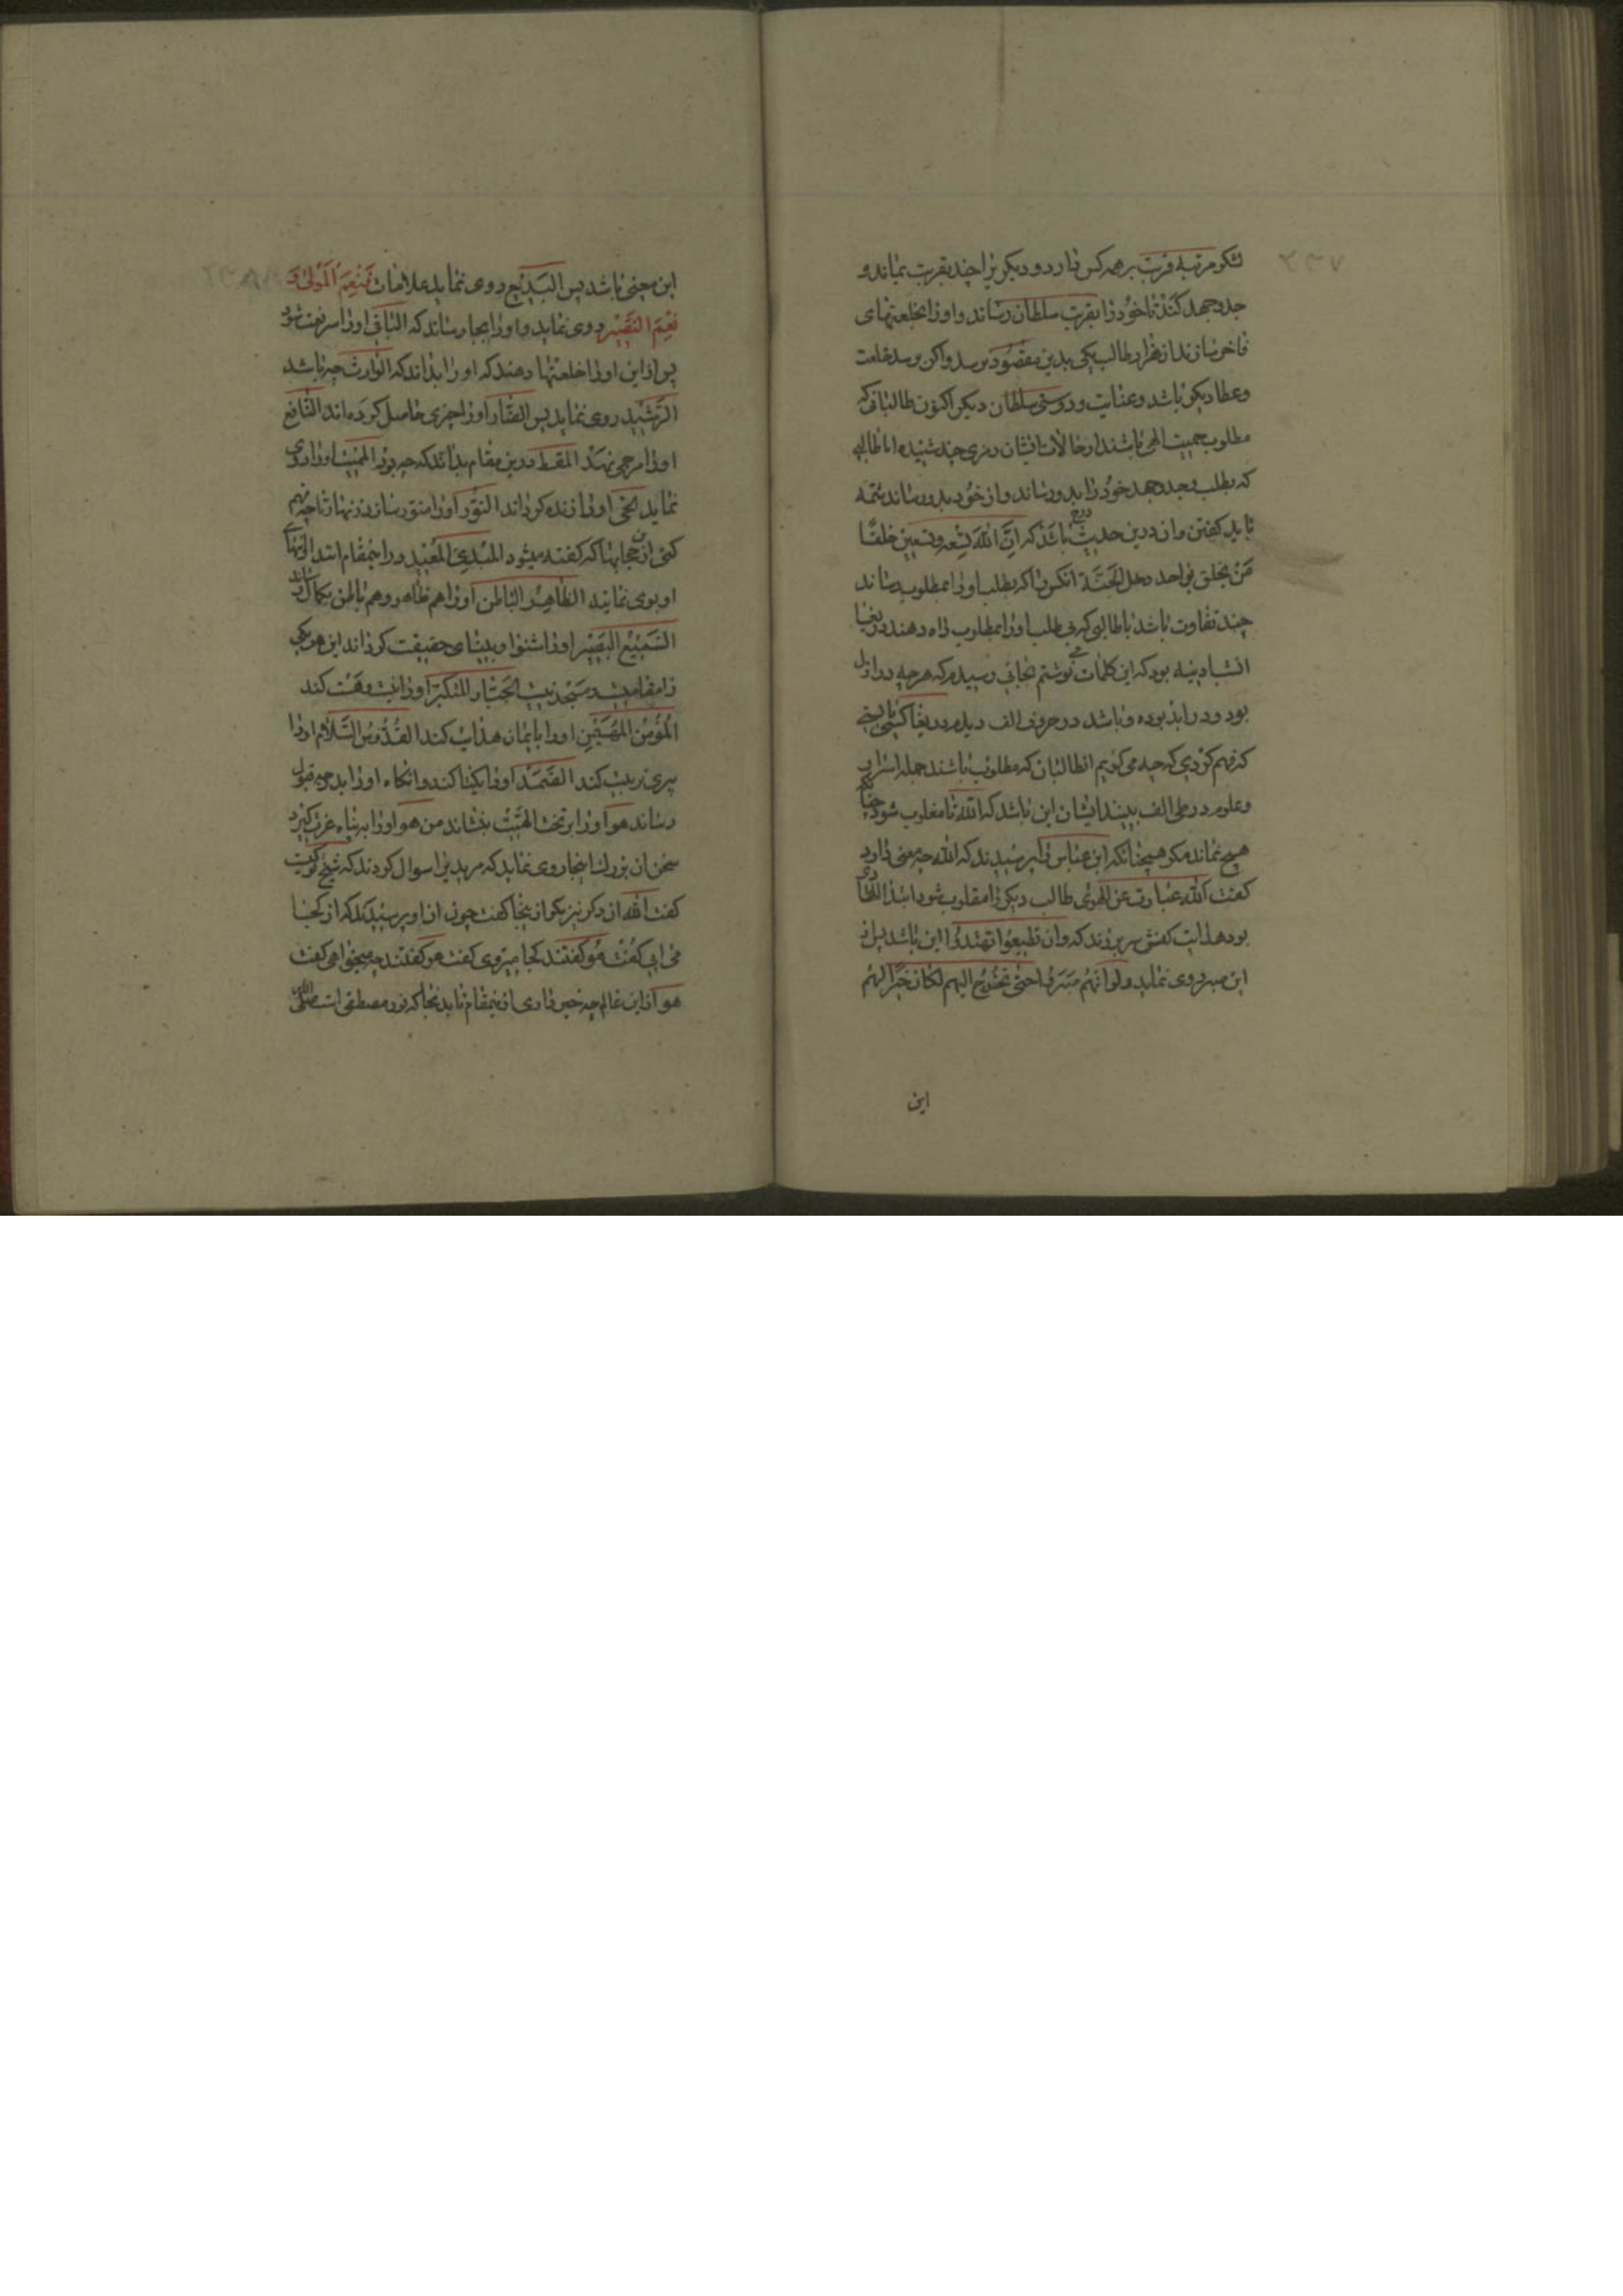 ۲۳۷
لشکر مرتبه قربت بر همه کس دارد و دیگریرا چند بقربت بماند و
جد و جهد کند تا خود را بقربت سلطان رساند و او را بخلعتهای
فاخر سازند از هزار طالب یکی بدین مقصود برسد و اکر برسد خلعت
و عطا دیکر باشد و عنایت و دوستی سلطان دیکر اکنون طالبانی که
مطلوب الهی باشند از حالات ایشان رمزی چند شنیده اما طالبی
که بطلب و جد و جهد خود را بدو رساند و از خود بدو رساند شمه
باید کفتن و آن درین حدیث درج باشد که ان الله تسعة و تسعین خلقا
من تخلق بواحد دخل الجنة آنکس را که بطلب او را بمطلوب رساند
چند تفاوت باشد با طالبی که بی طلب او را بمطلوب راه دهند دریغا
آدینه بود که این کلمات می نوشتم بجایی رسیدم که هرچه در ازل
بود و در ابد بوده و باشد در حرف الف دیدم دریغا کسی بایستی
که فهم کردی که چه می کویم اما طالبان که مطلوب باشند جمله اسرار
و علوم در طی الف بینند ایشان این باشد که الله تا مغلوب شود چنانکه
هیچ نماند مکر هو چنانکه ابن عباس را پرسیدند که الله چه معنی دارد
کفت الله عبارت عن الهو ای طالب دیکر را مقلوب شود
بود هدایت کفش سر برزند که و ان تطیعوا تهتدوا این باشد پس از
این صبر روی نماید و لو انهم صبروا حتی تخرج الیهم لکان خیرا لهم
این
این معنی باشد پس البدیع روی نماید علامات فنعم المولی و
نعم النصیر روی نماید و او را بجا رساند که الباقی او را
پس از این او را خلعتها دهند که او را بداند که الوارث چه باشد
الرشید روی نماید پس الضار او را چیزی حاصل کرده اند النافع
او را مرحمی نهد المقسط درین مقام بداند که چه بود الممیت او را روی
نماید الحی او را زنده کرداند النور او را منور سازد زنهار تا چه فهم
کنی از این حجابها که کفته میشود المبدئ المعید در این مقام ابتدا و انتها
او بوی نماید الظاهر الباطن او را هم ظاهر و هم باطن بکمال رساند
السمیع البصیر او را شنوا و بینای حقیقت کرداند این هر یکی
را مقامیست الجبار المتکبر او را نیست و هست کند
المؤمن المهیمن او را بایمان هدایت کند القدوس السلام او را
کند الصمد او را یکتا کند و آنکاه او را بدرجه قبول
رساند هو او را بر تخت الهیت بنشاند من هو او را به پناه عزت کیرد
سخن آن بزرک اینجا روی نماید که مریدیرا سوال کردند که شیخ تو کیست
کفت الله از دکر نیز مکر از اینجا کفت چون از او پرسیدند که از کجا
می آیی کفت هو کفتند کجا میروی کفت هو کفتند چه میخواهی کفت
هو از این عالم چه خبر داری از این مقام تا بدانجا که نور مصطفی است صلی الله